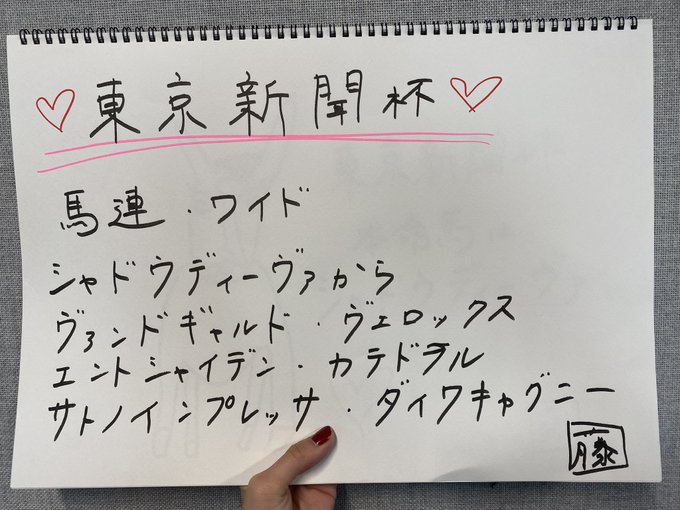 ♡東京新聞杯♡
馬連・ワイド
シャドウディーヴァから
ヴァンドギャルド・ヴェロックス
エントシャイデン・カテドラル
サトノインプレッサ・ダイワキャグニー
藤